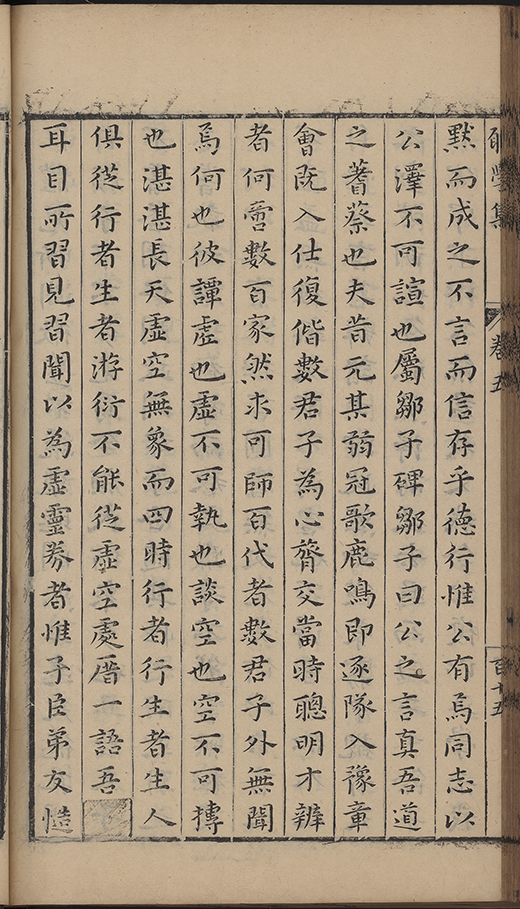 願學集 卷五 百十五
默而成之不言而信存乎德行惟公有焉同志以
公澤不可諠也屬鄒子碑鄒子曰公之言真吾道
之蓍蔡也夫昔元某弱冠歌鹿鳴即逐隊入豫章
會既入仕復偕數君子為心膂交當時聰明才辨
者何啻數百家然求可師百代者數君子外無聞
焉何也彼譚虛也虛不可執也談空也空不可摶
也湛湛長天虛空無象而四時行者行生者生人
俱從行者生者游衍不能從虛空處厝一語吾
耳目所習見習聞以為虛靈券者惟子臣弟友慥